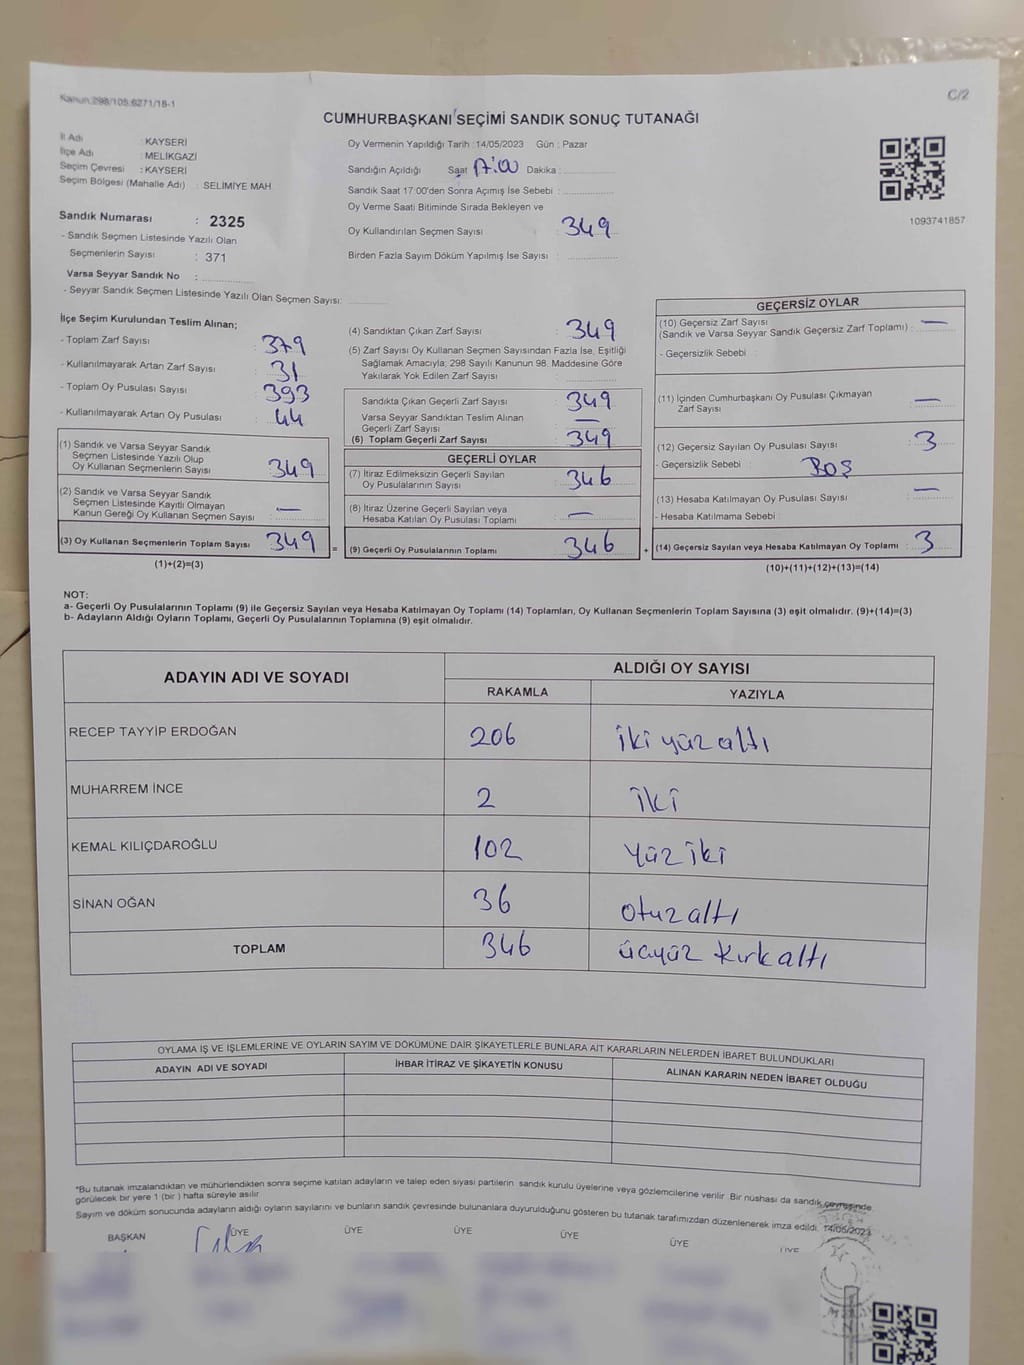 Kanun:298/105:6271/18-1
C/2
CUMHURBAŞKANI SEÇİMİ SANDIK SONUÇ TUTANAĞI
İl Adı : KAYSERİ
İlçe Adı : MELİKGAZİ
Seçim Çevresi : KAYSERİ
Seçim Bölgesi (Mahalle Adı) : SELİMİYE MAH
Sandık Numarası : 2325
- Sandık Seçmen Listesinde Yazılı Olan
Seçmenlerin Sayısı : 371
Varsa Seyyar Sandık No :
- Seyyar Sandık Seçmen Listesinde Yazılı Olan Seçmen Sayısı:
Oy Vermenin Yapıldığı Tarih : 14/05/2023 Gün : Pazar
Sandığın Açıldığı Saat 17:00 Dakika :
Sandık Saat 17:00'den Sonra Açımış İse Sebebi :
Oy Verme Saati Bitiminde Sırada Bekleyen ve
Oy Kullandırılan Seçmen Sayısı : 349
Birden Fazla Sayım Döküm Yapılmış İse Sayısı :
1093741857
İlçe Seçim Kurulundan Teslim Alınan;
- Toplam Zarf Sayısı : 379
- Kullanılmayarak Artan Zarf Sayısı : 31
- Toplam Oy Pusulası Sayısı : 393
- Kullanılmayarak Artan Oy Pusulası : 44
(1) Sandık ve Varsa Seyyar Sandık
Seçmen Listesinde Yazılı Olup
Oy Kullanan Seçmenlerin Sayısı : 349
(2) Sandık ve Varsa Seyyar Sandık
Seçmen Listesinde Kayıtlı Olmayan
Kanun Gereği Oy Kullanan Seçmen Sayısı : —
(3) Oy Kullanan Seçmenlerin Toplam Sayısı : 349
(1)+(2)=(3)
=
(4) Sandıktan Çıkan Zarf Sayısı : 349
(5) Zarf Sayısı Oy Kullanan Seçmen Sayısından Fazla İse, Eşitliği
Sağlamak Amacıyla; 298 Sayılı Kanunun 98. Maddesine Göre
Yakılarak Yok Edilen Zarf Sayısı :
Sandıkta Çıkan Geçerli Zarf Sayısı : 349
Varsa Seyyar Sandıktan Teslim Alınan
Geçerli Zarf Sayısı : —
(6) Toplam Geçerli Zarf Sayısı : 349
GEÇERLİ OYLAR
(7) İtiraz Edilmeksizin Geçerli Sayılan
Oy Pusulalarının Sayısı : 346
(8) İtiraz Üzerine Geçerli Sayılan veya
Hesaba Katılan Oy Pusulası Toplamı : —
(9) Geçerli Oy Pusulalarının Toplamı : 346
+
GEÇERSİZ OYLAR
(10) Geçersiz Zarf Sayısı
(Sandık ve Varsa Seyyar Sandık Geçersiz Zarf Toplamı) : —
- Geçersizlik Sebebi :
(11) İçinden Cumhurbaşkanı Oy Pusulası Çıkmayan
Zarf Sayısı : —
(12) Geçersiz Sayılan Oy Pusulası Sayısı : 3
- Geçersizlik Sebebi : BOŞ
(13) Hesaba Katılmayan Oy Pusulası Sayısı : —
- Hesaba Katılmama Sebebi :
(14) Geçersiz Sayılan veya Hesaba Katılmayan Oy Toplamı : 3
(10)+(11)+(12)+(13)=(14)
NOT:
a- Geçerli Oy Pusulalarının Toplamı (9) ile Geçersiz Sayılan veya Hesaba Katılmayan Oy Toplamı (14) Toplamları, Oy Kullanan Seçmenlerin Toplam Sayısına (3) eşit olmalıdır. (9)+(14)=(3)
b- Adayların Aldığı Oyların Toplamı, Geçerli Oy Pusulalarının Toplamına (9) eşit olmalıdır.
ADAYIN ADI VE SOYADI
ALDIĞI OY SAYISI
RAKAMLA YAZIYLA
RECEP TAYYİP ERDOĞAN 206 iki yüz altı
MUHARREM İNCE 2 iki
KEMAL KILIÇDAROĞLU 102 yüz iki
SİNAN OĞAN 36 otuz altı
TOPLAM 346 üçyüz kırk altı
OYLAMA İŞ VE İŞLEMLERİNE VE OYLARIN SAYIM VE DÖKÜMÜNE DAİR ŞİKAYETLERLE BUNLARA AİT KARARLARIN NELERDEN İBARET BULUNDUKLARI
ADAYIN ADI VE SOYADI İHBAR İTİRAZ VE ŞİKAYETİN KONUSU ALINAN KARARIN NEDEN İBARET OLDUĞU
*Bu tutanak imzalandıktan ve mühürlendikten sonra seçime katılan adayların ve talep eden siyasi partilerin sandık kurulu üyelerine veya gözlemcilerine verilir. Bir nüshası da sandık çevresinde
görülecek bir yere 1 (bir ) hafta süreyle asılır.
Sayım ve döküm sonucunda adayların aldığı oyların sayılarını ve bunların sandık çevresinde bulunanlara duyurulduğunu gösteren bu tutanak tarafımızdan düzenlenerek imza edildi. 14/05/2023
BAŞKAN ÜYE ÜYE ÜYE ÜYE ÜYE ÜYE